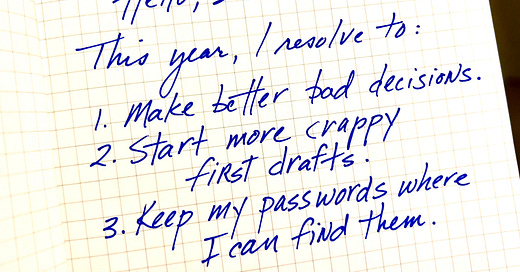 This year, I resolve to:
1. Make better bad decisions.
2. Start more crappy
first drafts.
3. Keep my passwords where
I can find them.